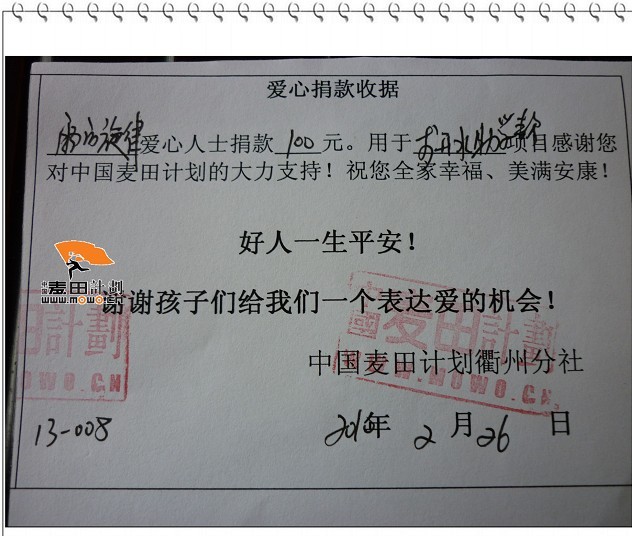 爱心捐款收据
南方旋律爱心人士捐款 100 元。用于 项目感谢您
对中国麦田计划的大力支持！祝您全家幸福、美满安康！
好人一生平安！
谢谢孩子们给我们一个表达爱的机会！
中国麦田计划衢州分社
13-008
年 2 月 26 日
麦田計劃
WWW.MOWO.CN
中國麦田計劃
WWW.MOWO.CN